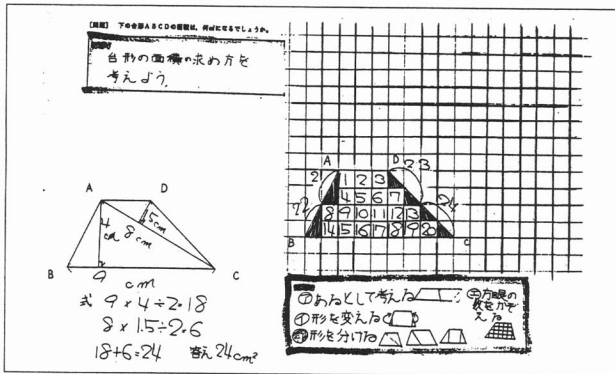 【問題】 下の台形ABCDの面積は、何cm²になるでしょうか。
台形の面積の求め方を
考えよう。
A D
5cm
4
cm
8cm
B 9 C
cm
式 9×4÷2=18
8×1.5÷2=6
18+6=24 答え 24cm²
A D
2 1 2 3 23
4 5 6 7
22 8 9 10 11 12 13 24
14 15 16 17 18 19 20
B C
㋐あるとして考える
㋑形を変える
形を分ける
㋓方眼の
数をかぞ
える